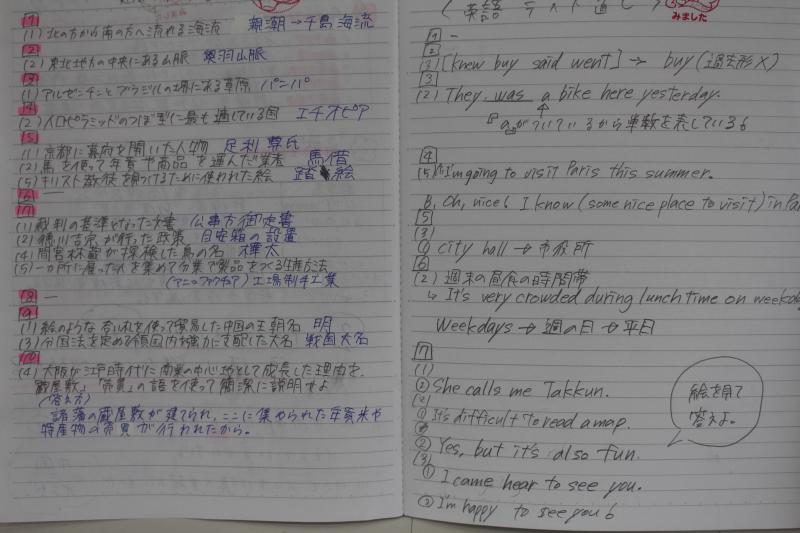 1
(1) 北の方から南の方へ流れる海流 親潮→千島海流
2
(2) 東北地方の中央にある山脈 奥羽山脈
3
(1) アルゼンチンとブラジルの境にある草原 パンパ
4
(2) 人口ピラミッドのつぼ型に最も適している国 エチオピア
5
(1) 京都に幕府を開いた人物 足利尊氏
(2) 馬を使って年貢や商品を運んだ業者 馬借
(5) キリスト教徒を見つけるために使われた絵 踏絵
6 ー
7
(1) 裁判の基準となった文書 公事方御定書
(2) 徳川吉宗が行った政策 目安箱の設置
(4) 間宮林蔵が探検した島の名 樺太
(5) 一ヵ所に雇った人を集めて分業で製品をつくる生産方法
(マニュファクチア) 工場制手工業
8 ー
9
(1) 絵のような合い札を使って貿易した中国の王朝名 明
(3) 分国法を定め領国内を強力に支配した大名 戦国大名
10
(4) 大阪が江戸時代に商業の中心地として成長した理由を、
「蔵屋敷」「売買」の語を使って簡潔に説明せよ
(答え方)
諸藩の蔵屋敷が建てられ、ここに集められた年貢米や
特産物の売買が行われたから。
(英語 テスト直し)
みました
1 ー
2
(3) [knew buy said went] → buy (過去形×)
3
(2) They was a bike here yesterday.
「a」がついているから単数を表している。
4
(5) I'm going to visit Paris this summer.
B. Oh, nice! I know (some nice place to visit) in
5
(3)
① city hall → 市役所
6
(2) 週末の昼食の時間帯
↳ It's very crowded during lunch time on
Weekdays → 週の日 → 平日
7
(1)
② She calls me Takkun.
(2)
① It's difficult to read a map.
② Yes, but it's also fun.
(3)
① I came hear to see you.
② I'm happy to see you!
絵を見て
答えよ。